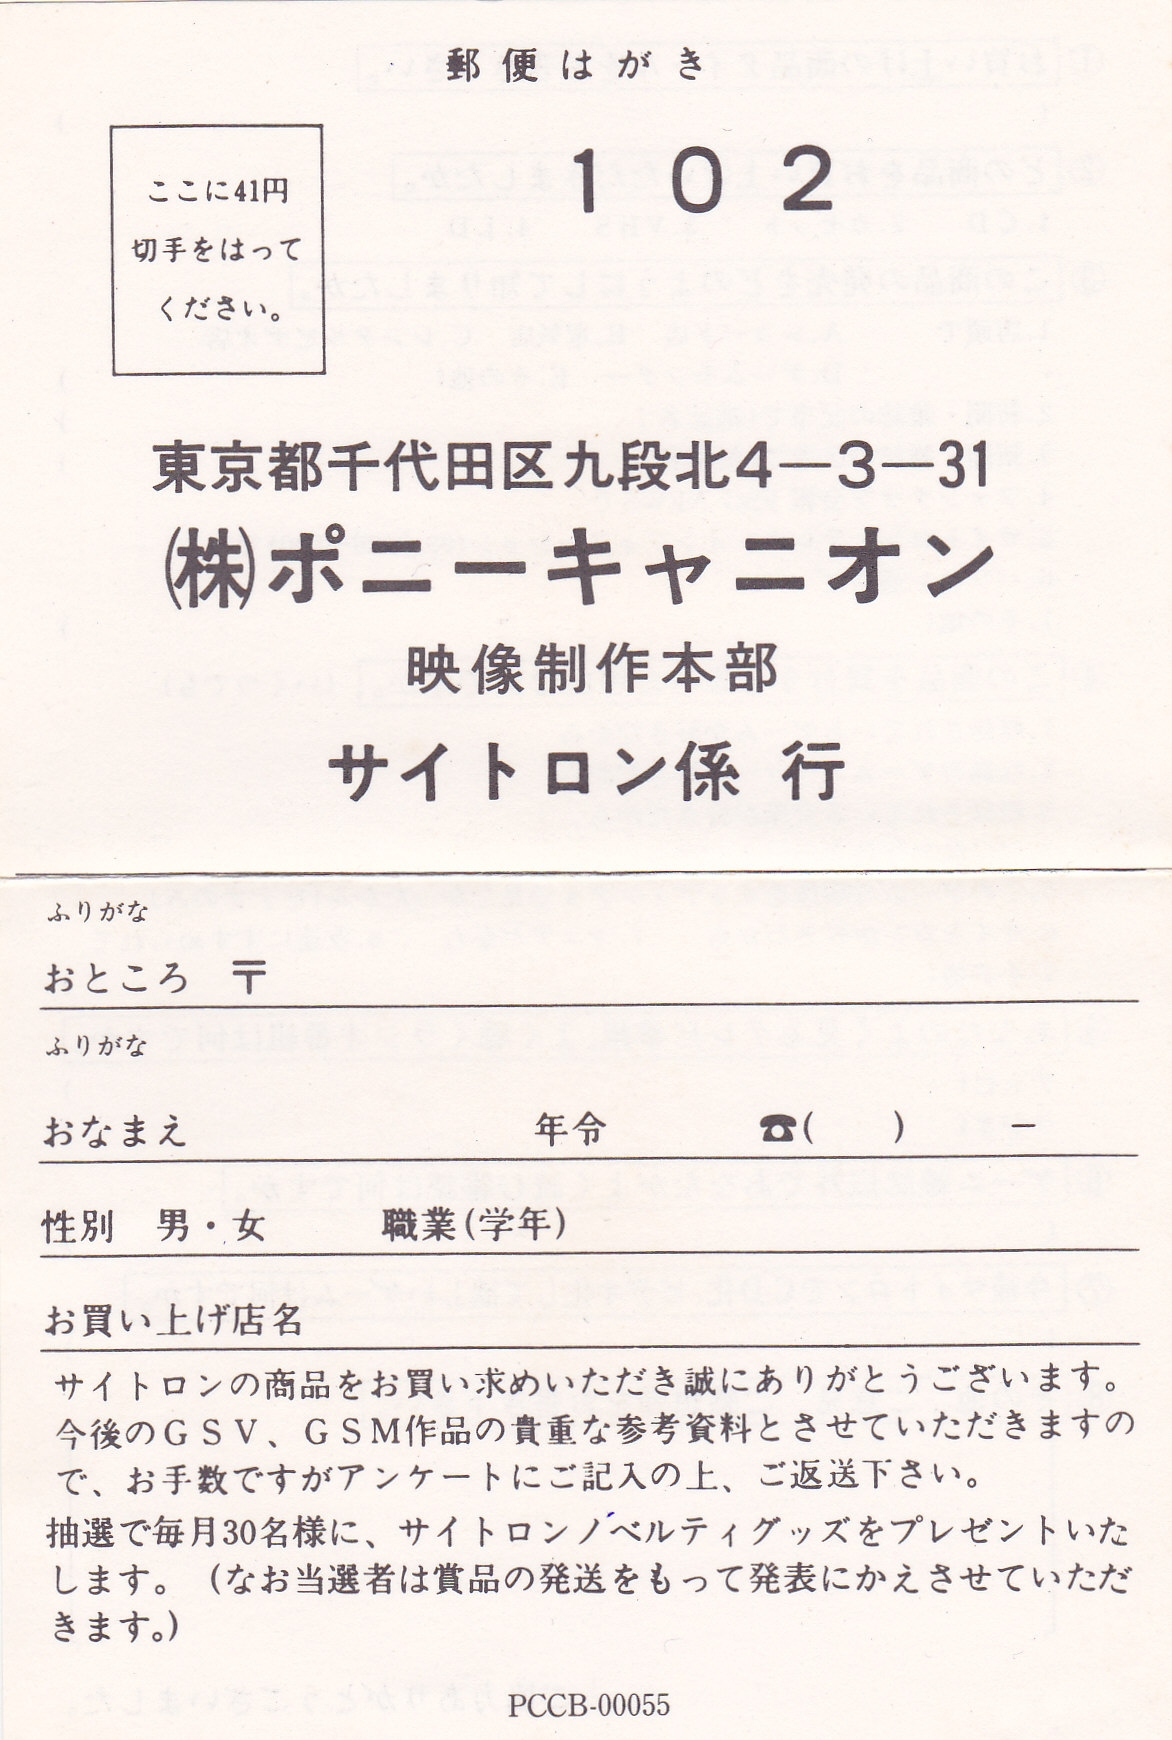 郵便はがき
ここに41円
切手をはって
ください。
102
東京都千代田区九段北4―3―31
㈱ポニーキャニオン
映像制作本部
サイトロン係 行
ふりがな
おところ 〒
ふりがな
おなまえ 年令 ☎( ) −
性別 男・女 職業(学年)
お買い上げ店名
サイトロンの商品をお買い求めいただき誠にありがとうございます。
今後のGSV、GSM作品の貴重な参考資料とさせていただきますの
で、お手数ですがアンケートにご記入の上、ご返送下さい。
抽選で毎月30名様に、サイトロンノベルティグッズをプレゼントいた
します。（なお当選者は賞品の発送をもって発表にかえさせていただ
きます。）
PCCB-00055